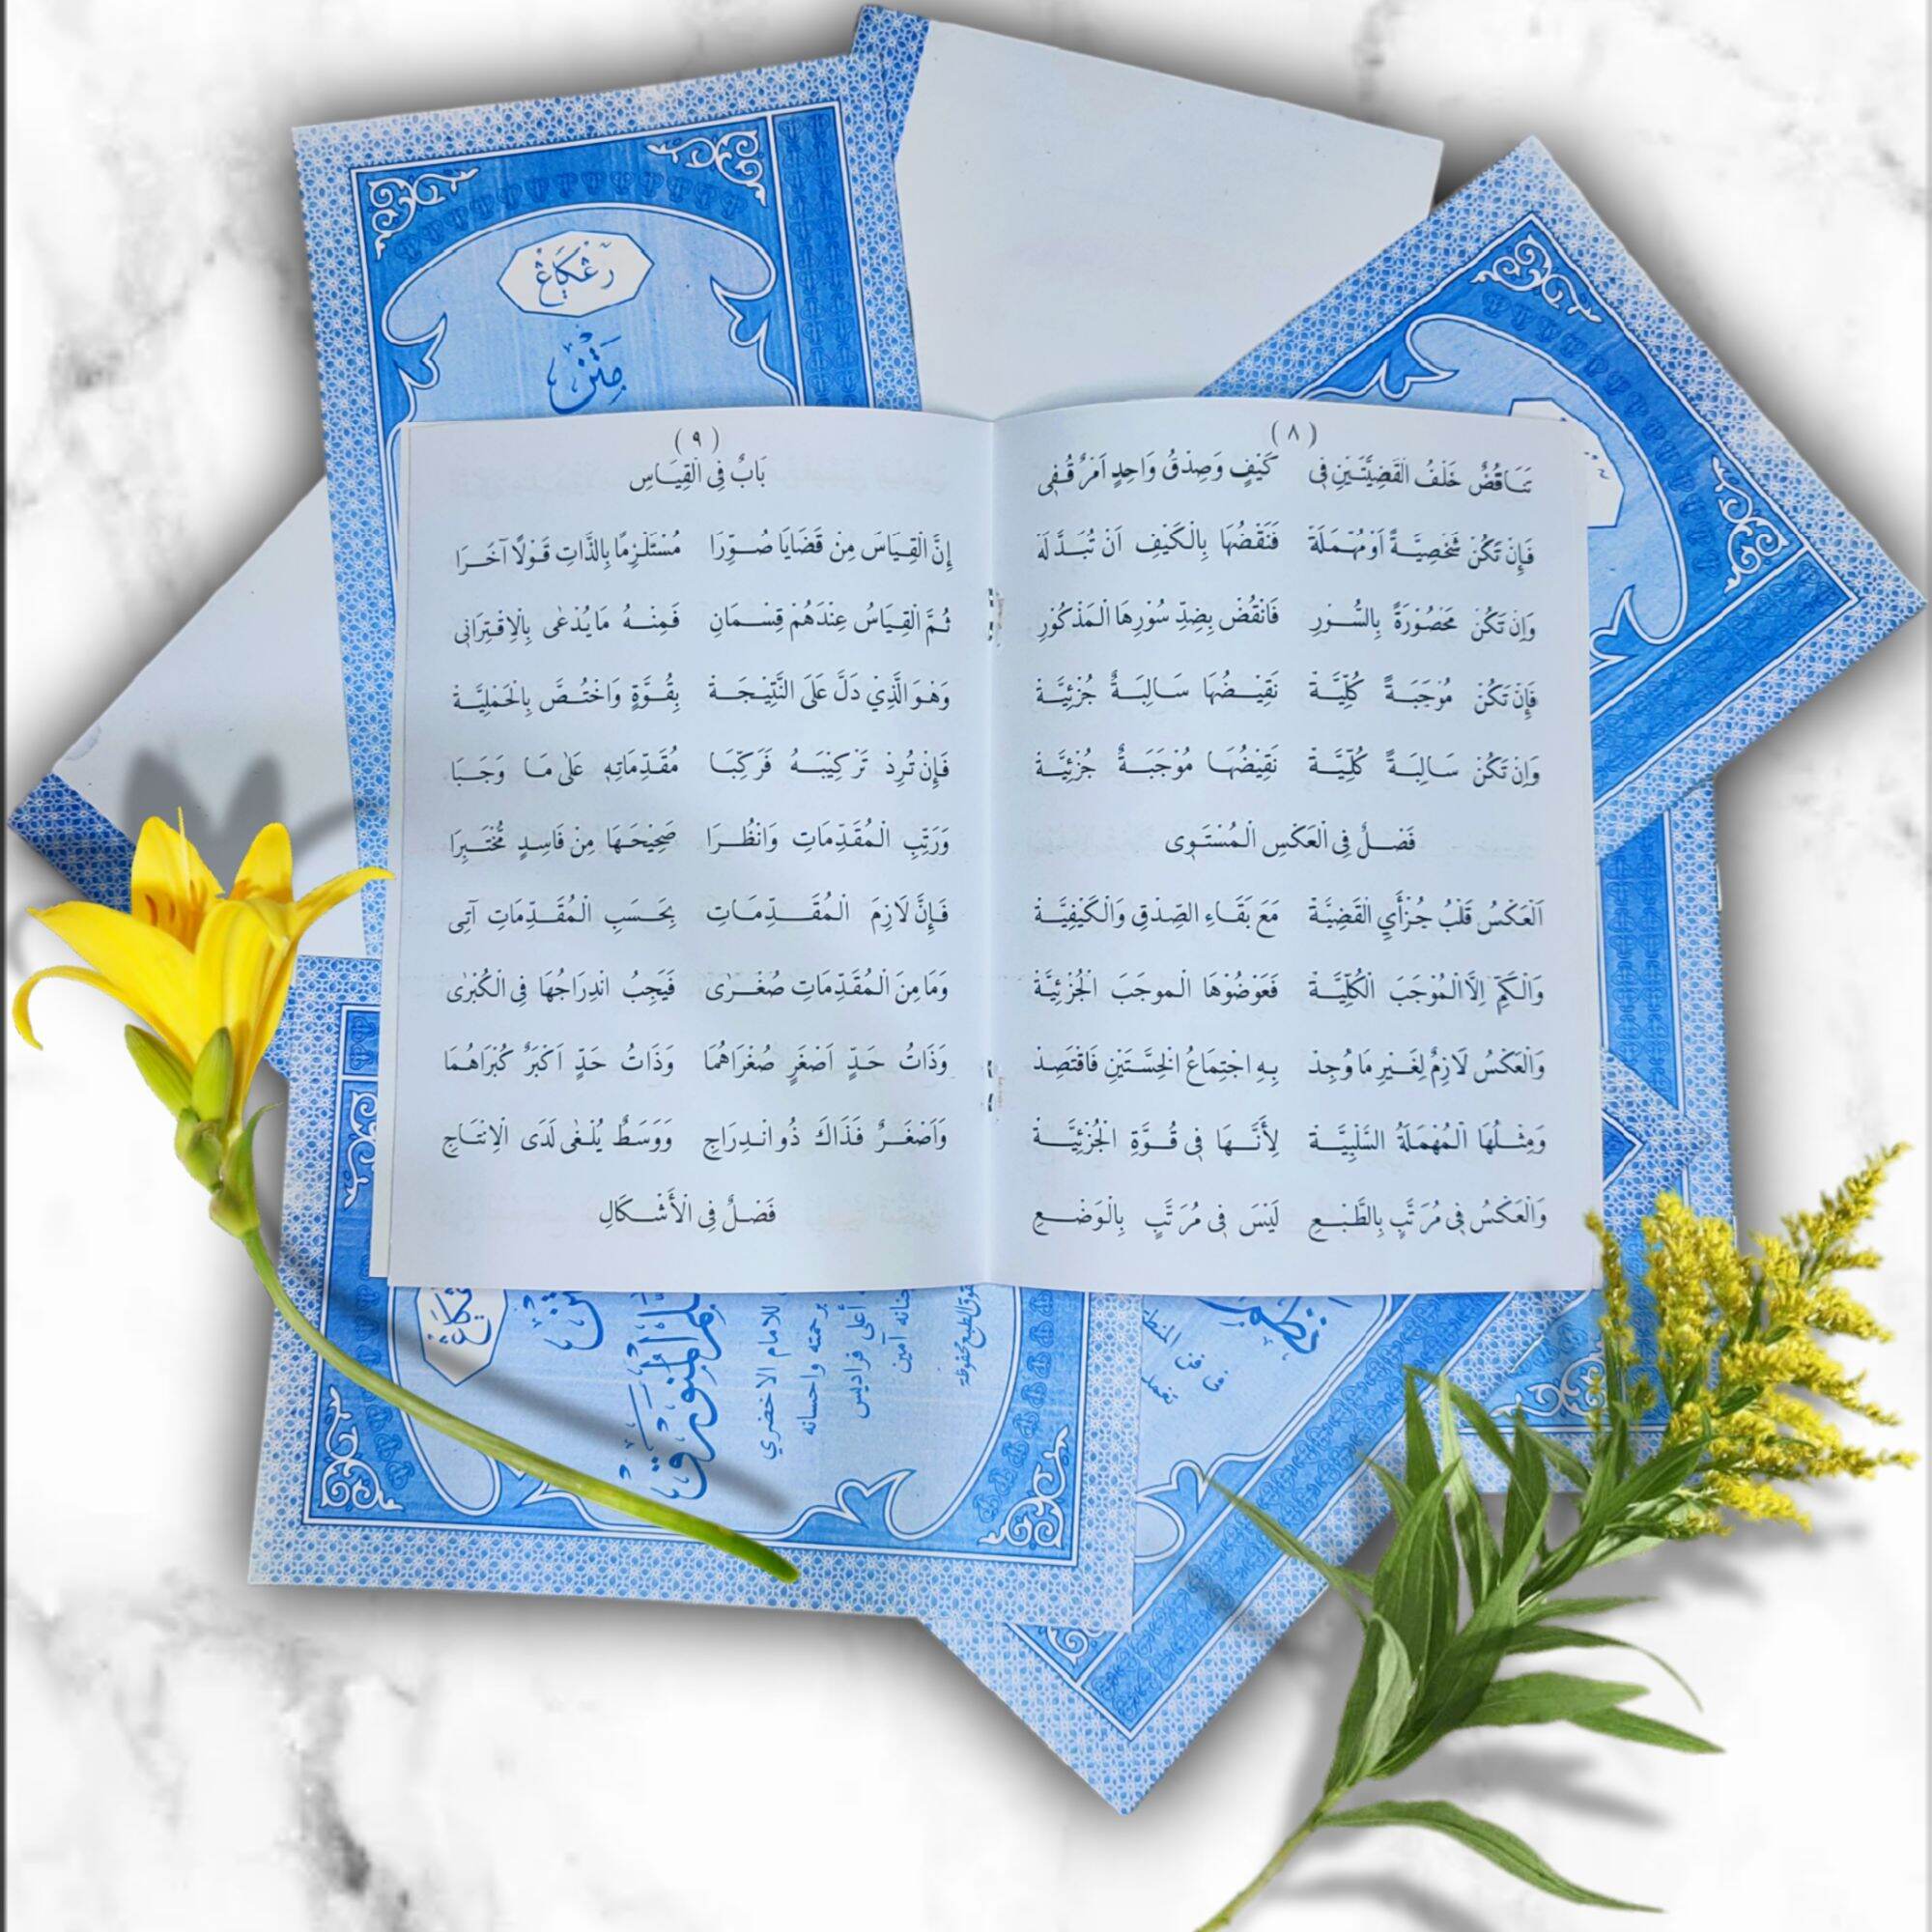 رَغْكَاڠْ
مَتْنُ
( ٨ )
تَنَاقُضٌ خَلْفُ الْقَضِيَّتَيْنِ فِي كَيْفٍ وَصِدْقُ وَاحِدٍ اَمْرٌ قُفِي
فَإِنْ تَكُنْ شَخْصِيَّةً اَوْ مُهْمَلَةْ فَنَقْضُهَا بِالْكَيْفِ اَنْ تُبَدِّلَهْ
وَإِنْ تَكُنْ مَحْصُوْرَةً بِالسُّوْرِ فَانْقُضْ بِضِدِّ سُوْرِهَا الْمَذْكُوْرِ
فَإِنْ تَكُنْ مُوْجَبَةً كُلِّيَّةْ نَقِيْضُهَا سَالِبَةٌ جُزْئِيَّةْ
وَإِنْ تَكُنْ سَالِبَةً كُلِّيَّةْ نَقِيْضُهَا مُوْجَبَةٌ جُزْئِيَّةْ
فَصْلٌ فِي الْعَكْسِ الْمُسْتَوِى
اَلْعَكْسُ قَلْبُ جُزْأَيِ الْقَضِيَّةْ مَعَ بَقَاءِ الصِّدْقِ وَالْكَيْفِيَّةْ
وَالْكَمِّ اِلَّا الْمُوْجَبَ الْكُلِّيَّةْ فَعَوْضُوْهَا الْموجَبَ الْجُزْئِيَّةْ
وَالْعَكْسُ لَازِمٌ لِغَيْرِ مَا وُجِدْ بِهِ اجْتِمَاعُ الْخِسَّتَيْنِ فَاقْتَصِدْ
وَمِثْلُهَا الْمُهْمَلَةُ السَّلْبِيَّةْ لِأَنَّهَا فِي قُوَّةِ الْجُزْئِيَّةْ
وَالْعَكْسُ فِي مُرَتَّبٍ بِالطَّبْعِ لَيْسَ فِي مُرَتَّبٍ بِالْوَضْعِ
( ٩ )
بَابٌ فِي الْقِيَاسِ
إِنَّ الْقِيَاسَ مِنْ قَضَايَا صُوِّرَا مُسْتَلْزِمًا بِالذَّاتِ قَوْلًا آخَرَا
ثُمَّ الْقِيَاسُ عِنْدَهُمْ قِسْمَانِ فَمِنْهُ مَا يُدْعٰى بِالْاِقْتِرَانِى
وَهْوَ الَّذِيْ دَلَّ عَلَى النَّتِيْجَةْ بِقُوَّةٍ وَاخْتُصَّ بِالْحَمْلِيَّةْ
فَإِنْ تُرِدْ تَرْكِيْبَهُ فَرَكِّبَا مُقَدِّمَاتِهِ عَلٰى مَا وَجَبَا
وَرَتِّبِ الْمُقَدِّمَاتِ وَانْظُرَا صَحِيْحَهَا مِنْ فَاسِدٍ مُخْتَبِرَا
فَإِنَّ لَازِمَ الْمُقَدِّمَاتِ بِحَسَبِ الْمُقَدِّمَاتِ آتِى
وَمَا مِنَ الْمُقَدِّمَاتِ صُغْرٰى فَيَجِبُ انْدِرَاجُهَا فِي الْكُبْرٰى
وَذَاتُ حَدٍّ اَصْغَرٍ صُغْرَاهُمَا وَذَاتُ حَدٍّ اَكْبَرٌ كُبْرَاهُمَا
وَاَصْغَرٌ فَذَاكَ ذُو انْدِرَاجٍ وَوَسَطٌ يُلْغٰى لَدَى الْاِنْتَاجِ
فَصْلٌ فِي الْأَشْكَالِ
الْمُنَوْرَقْ
للامام الاخضري
برحمته واحسانه
أعلى فراديس
جنانه آمين